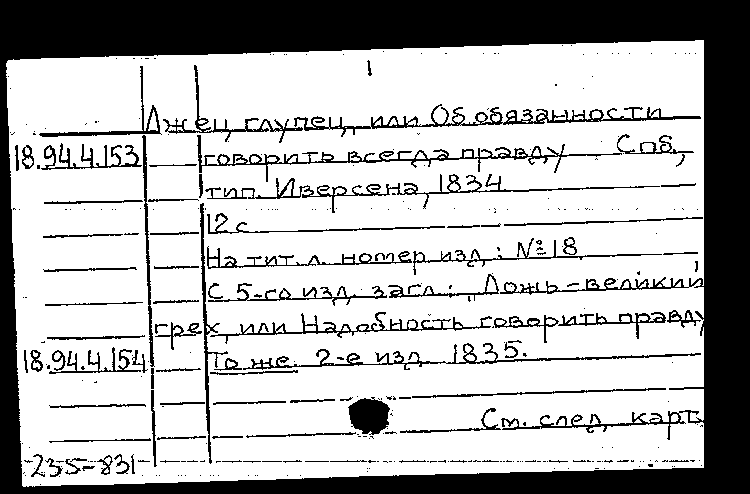 1
Лжец, глупец, или Об обязанности
18.94.4.153 говорить всегда правду Спб.,
тип. Иверсена, 1834
12 с
На тит. л. номер изд.: №18
С 5-го изд. загл.: „Ложь – великий
грех, или Надобность говорить правду
18.94.4.154 То же. 2-е изд. 1835.
См. след. карт.
235-831